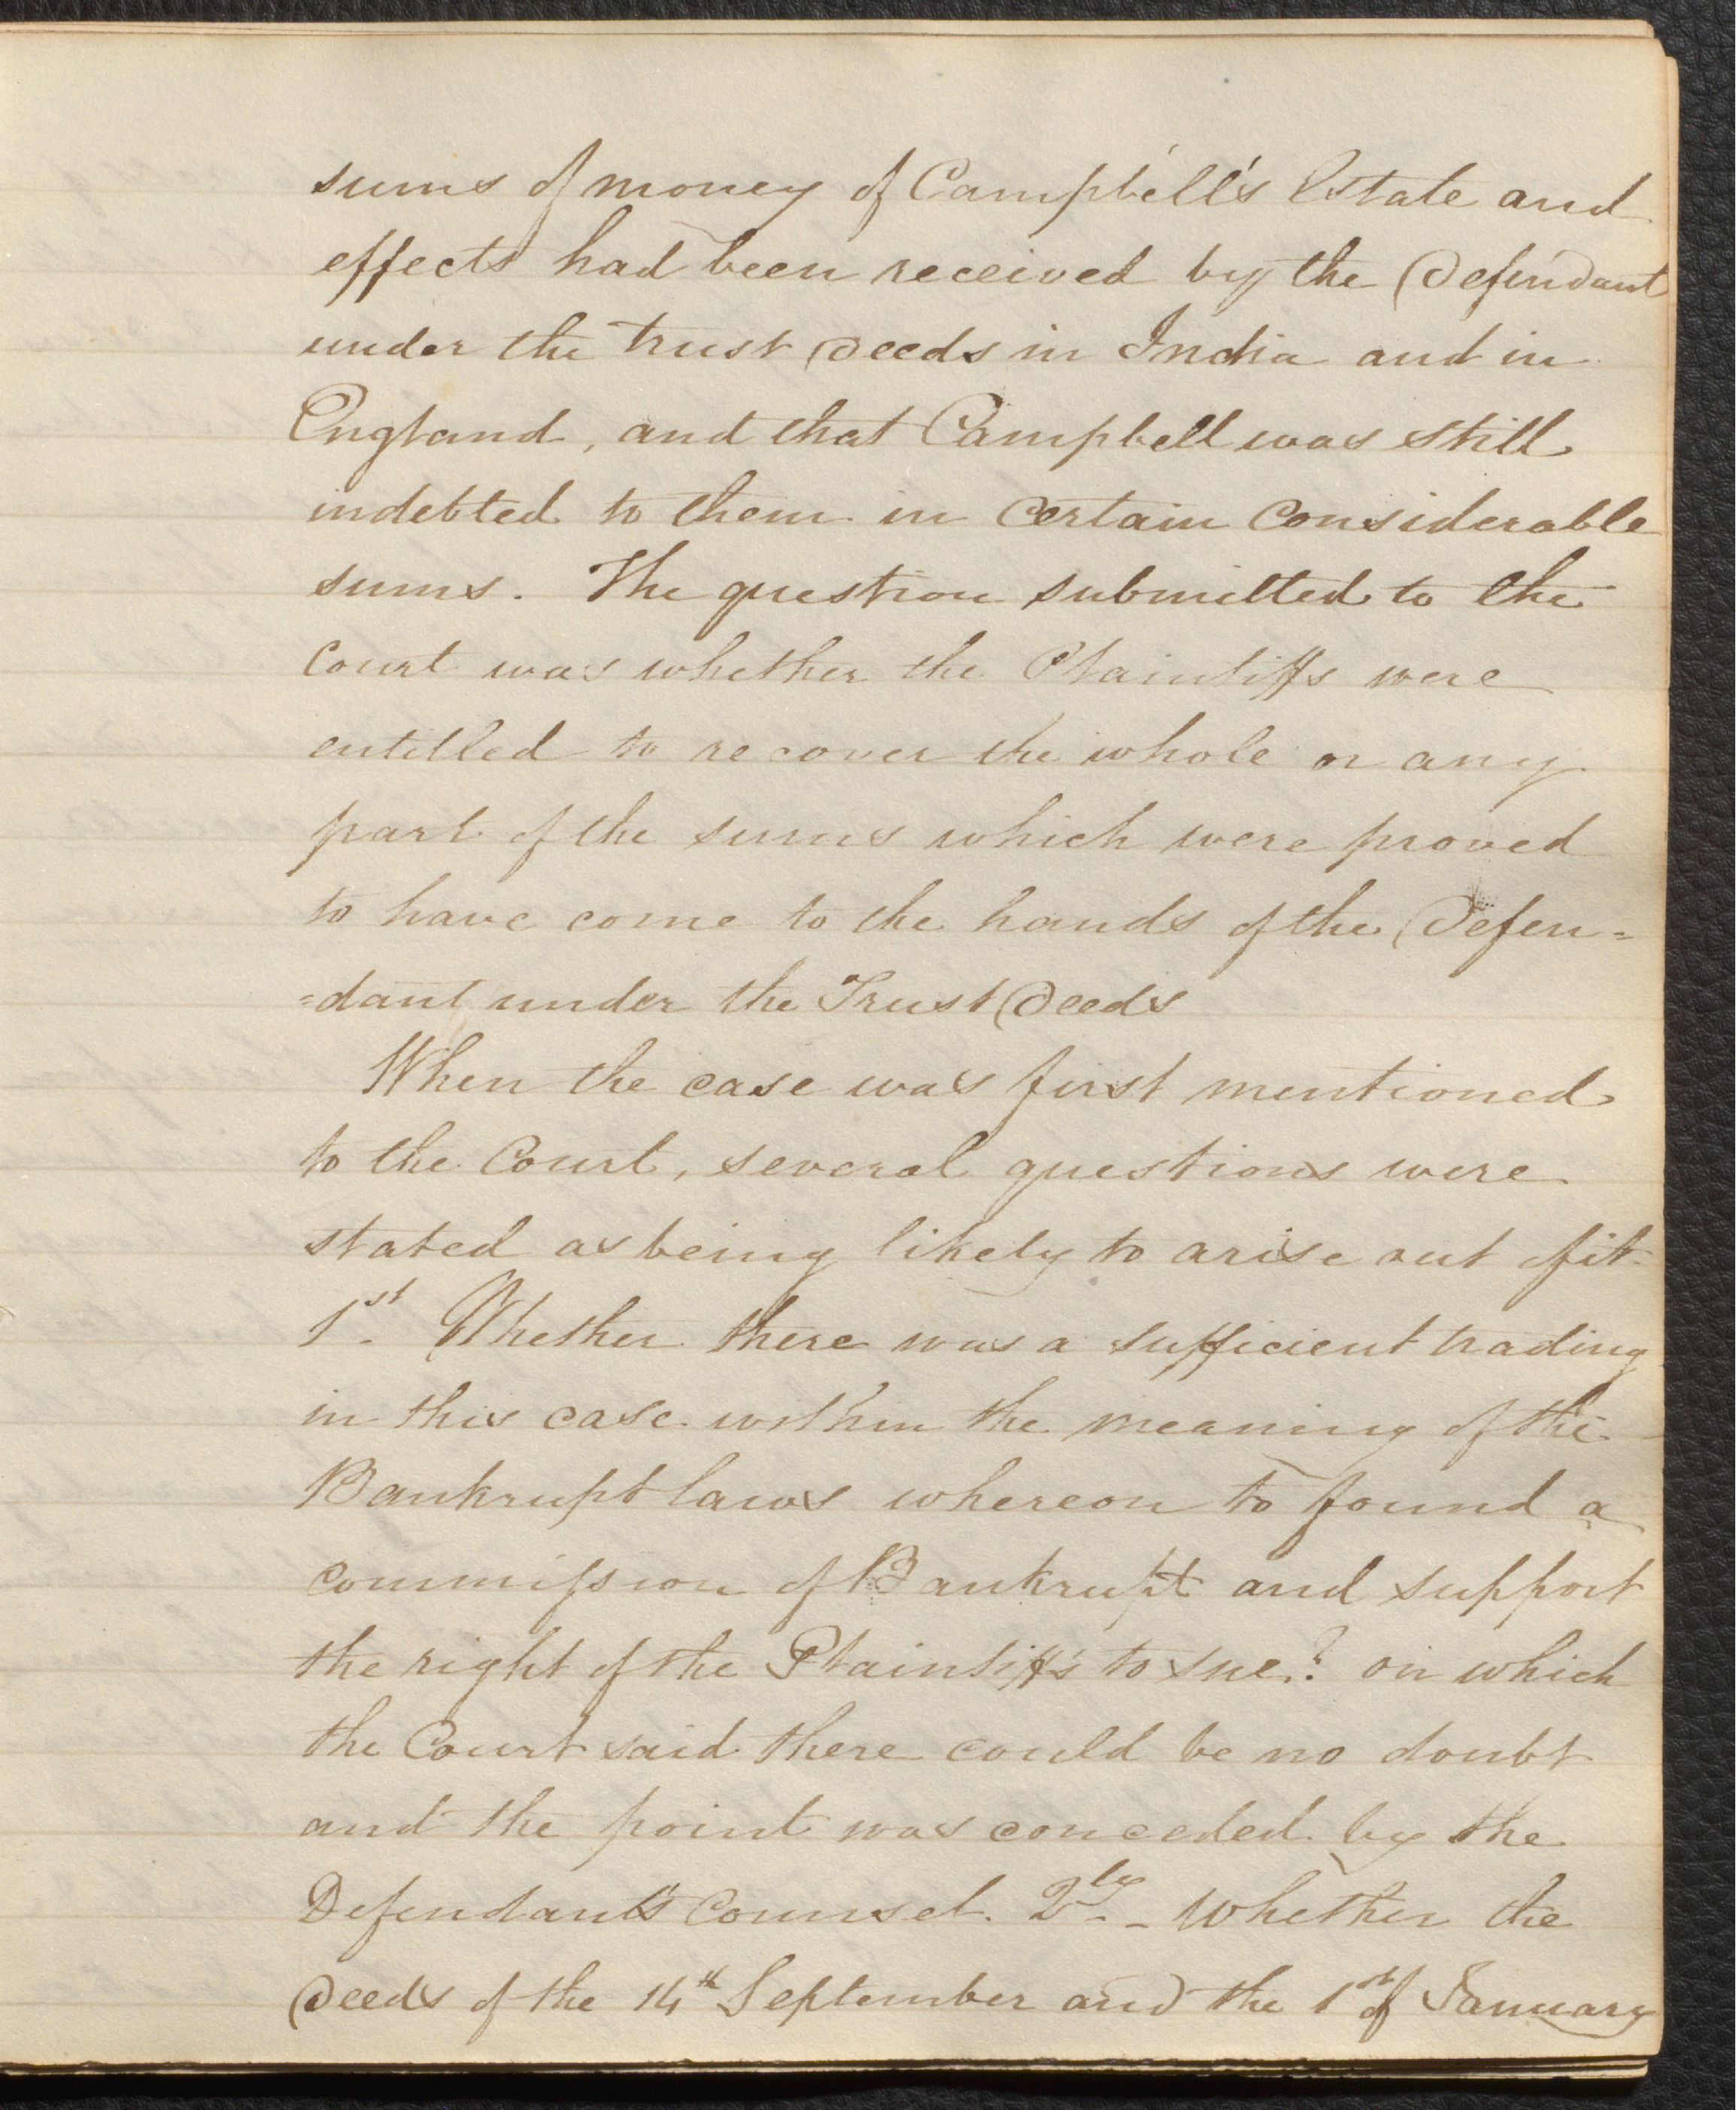 sums of money of Campbell's Estate and
effects had been received by the Defendant
under the trust Deeds in India and in
England, and that Campbell was still
indebted to them in certain considerable
sums. The question submitted to the
Court was whether the Plaintiffs were
entitled to recover the whole or any
part of the sums which were proved
to have come to the hands of the Defen=
=dant under the Trust Deeds
When the case was first mentioned
to the Court, several questions were
stated as being likely to arise out of it
1st. Whether there was a sufficient trading
in this case within the meaning of the
Bankrupt laws whereon to found a
commission of Bankrupt and support
the right of the Plaintiffs to sue? on which
the Court said there could be no doubt
and the point was conceded by the
Defendant's Counsel. 2ly - Whether the
Deeds of the 14th September and the 1st of January